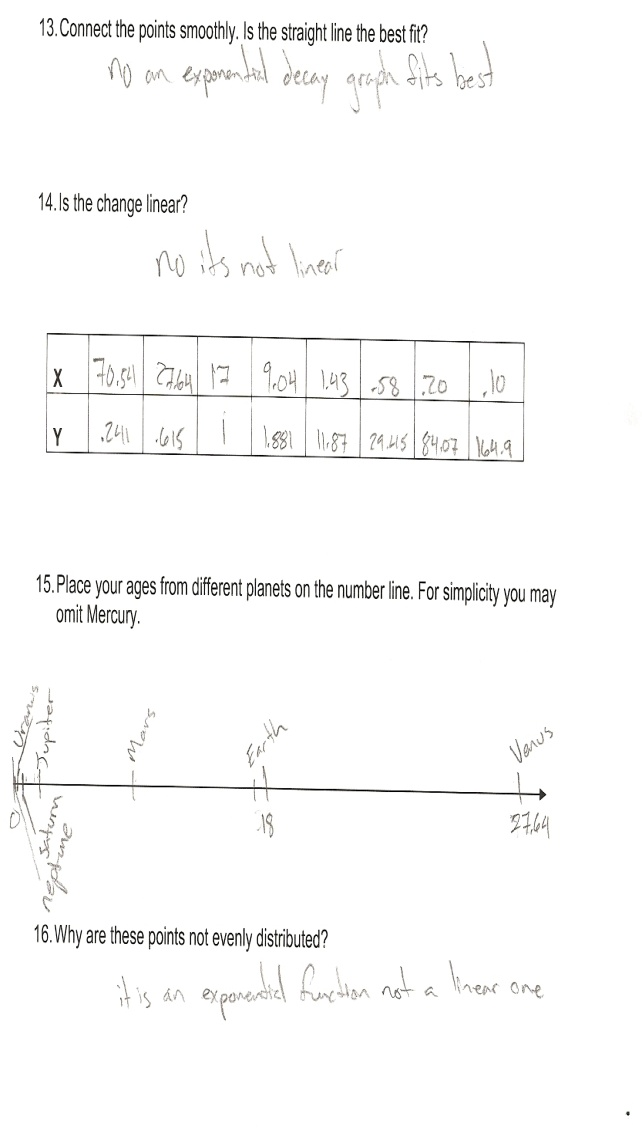 13. Connect the points smoothly. Is the straight line the best fit?
no an exponential decay graph fits best
14. Is the change linear?
no its not linear
X 70.541 27.64 17 9.04 1.43 .58 .20 .10
Y .241 .615 1 1.881 11.87 29.45 84.07 164.9
15. Place your ages from different planets on the number line. For simplicity you may
omit Mercury.
Uranus
Jupiter
Mars
Earth
Venus
0
Saturn
neptune
18
27.64
16. Why are these points not evenly distributed?
it is an exponential function not a linear one